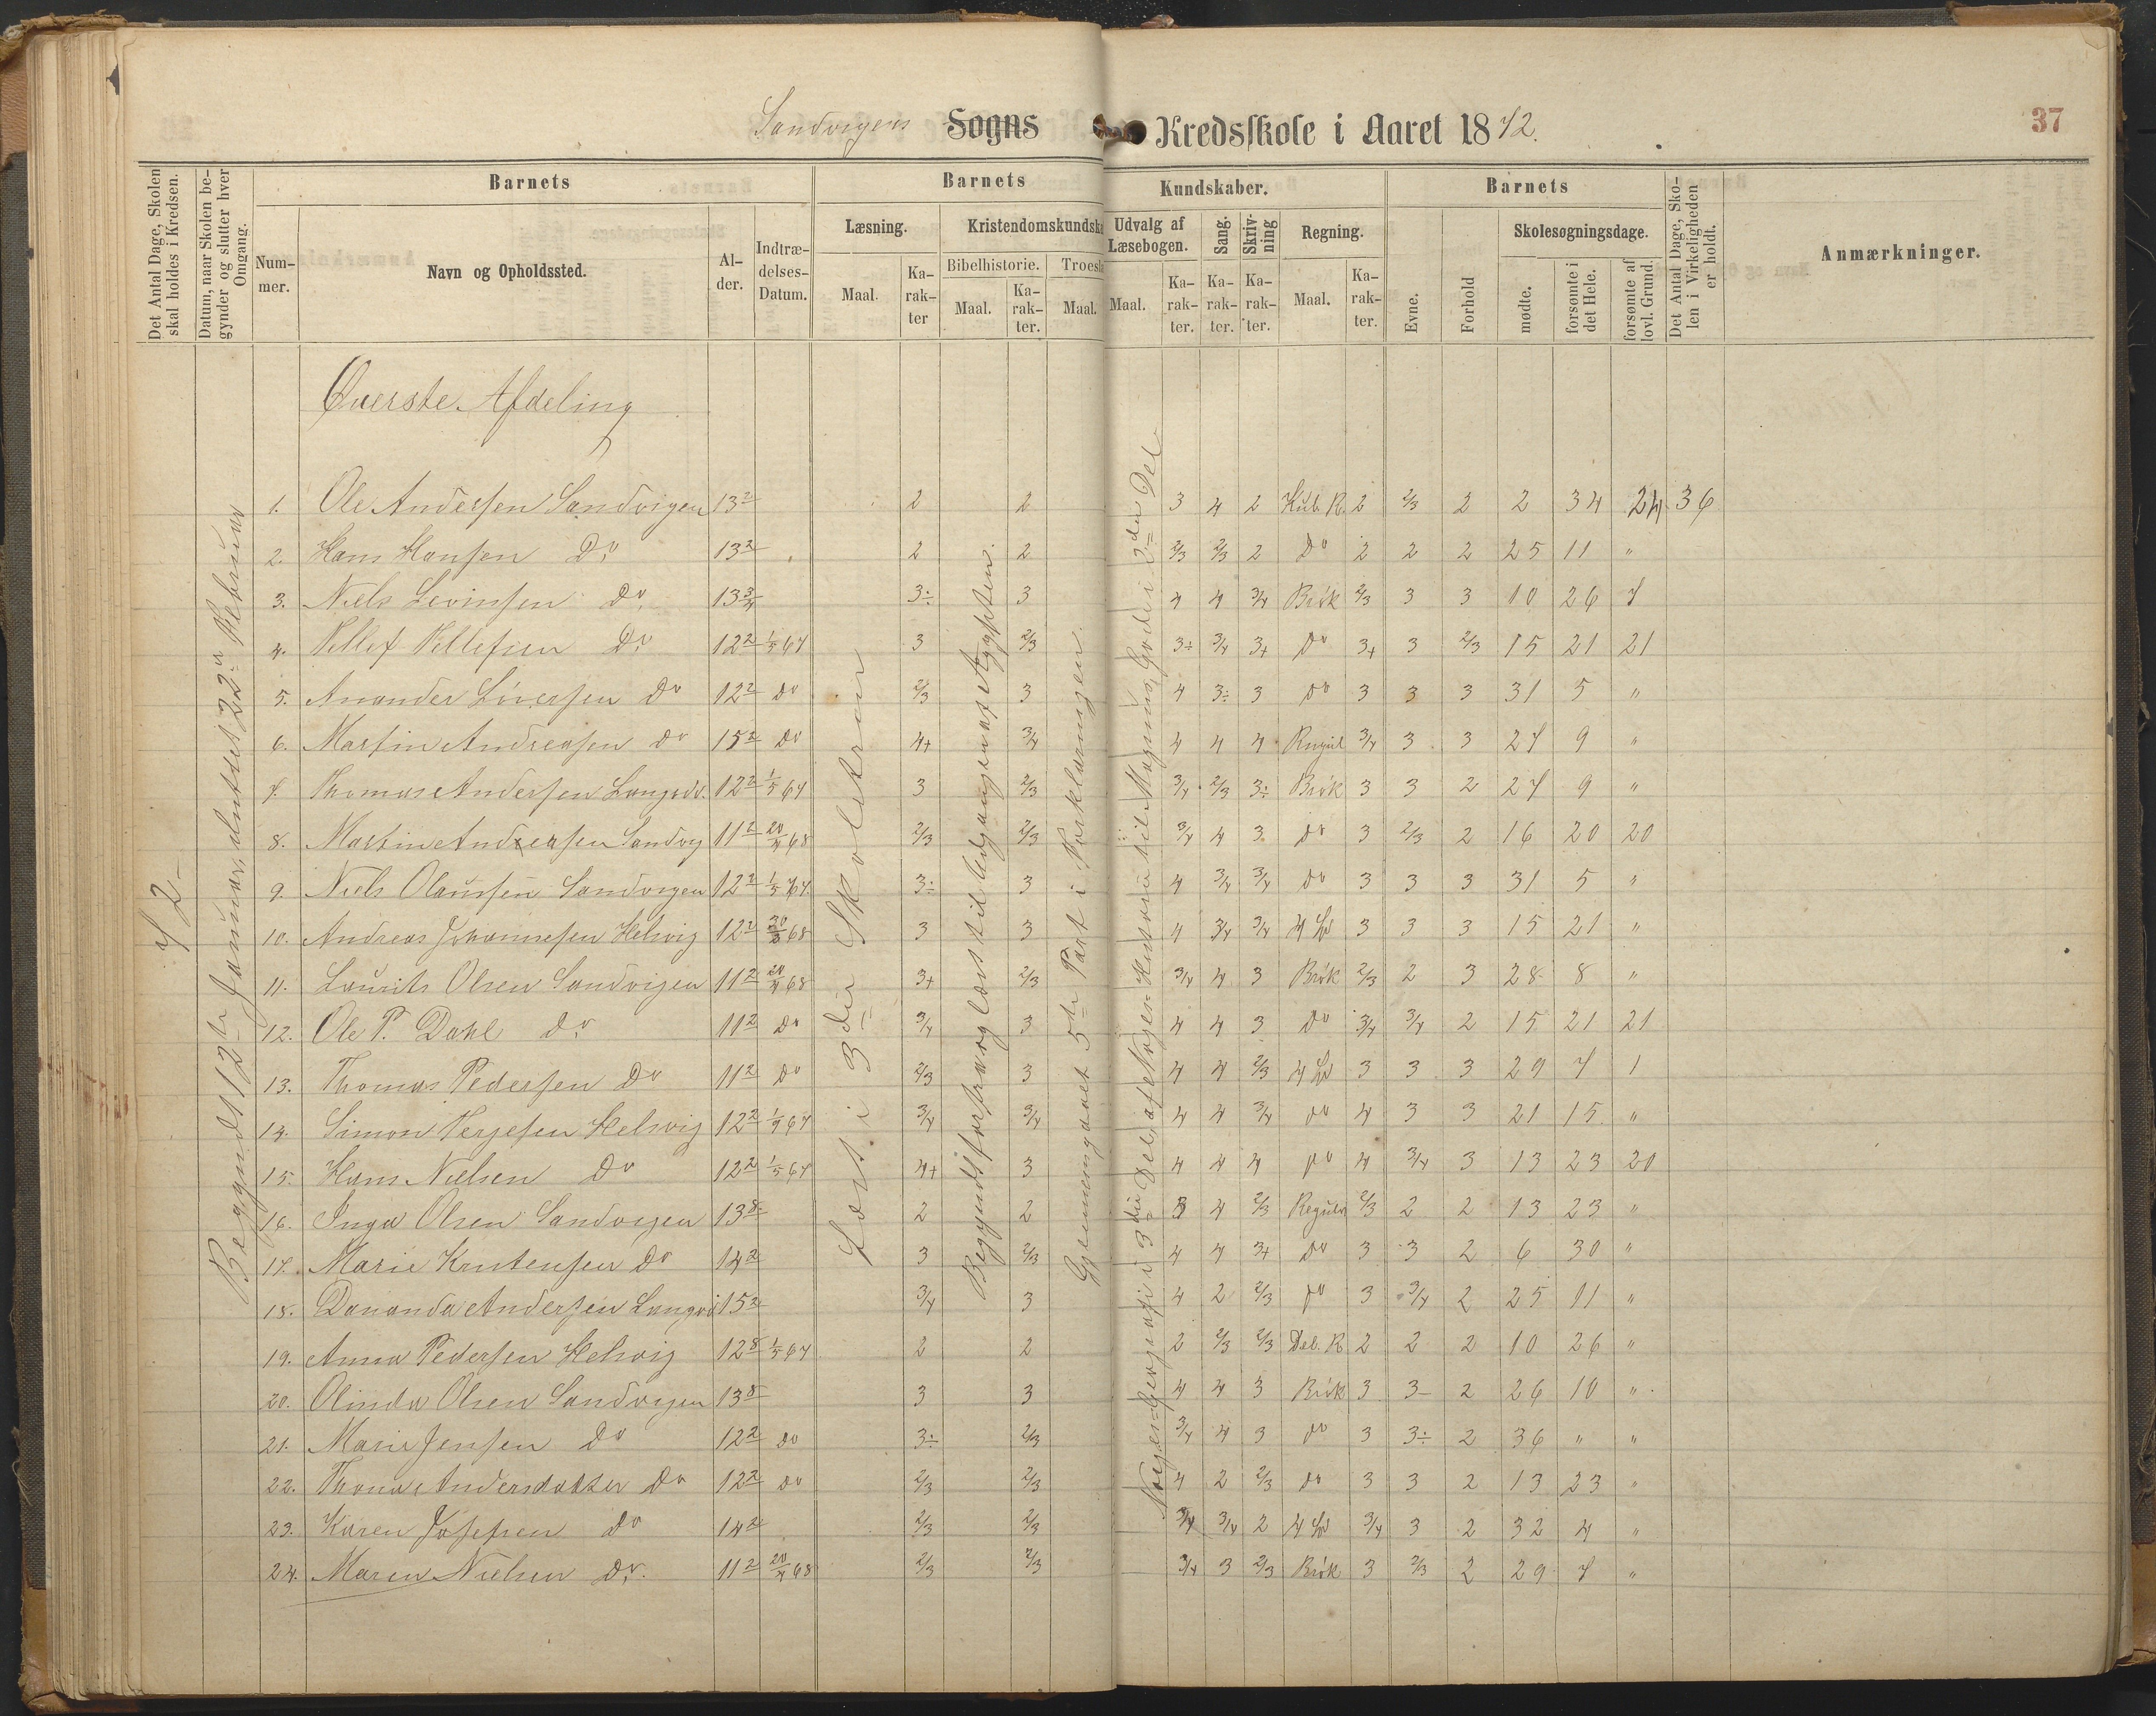 Sandvigens Sogns Kredsskole i Aaret 1872.
37
Det Antal Dage, Skolen skal holdes i Kredsen.
Datum, naar Skolen begynder og slutter hver Omgang.
Barnets
Nummer.
Navn og Opholdssted.
Alder.
Indtrædelses-Datum.
Barnets
Kundskaber.
Læsning.
Maal.
Karakter
Kristendomskundska
Bibelhistorie.
Maal.
Karakter.
Troesl
Maal.
Udvalg af Læsebogen.
Maal.
Karakter.
Sang.
Karakter.
Skrivning
Karakter.
Regning.
Maal.
Karakter.
Barnets
Evne.
Forhold
Skolesøgningsdage.
mødte.
forsømte i det Hele.
forsømte af lovl. Grund.
Det Antal Dage, Skolen i Virkeligheden er holdt.
Anmærkninger.
Øverste Afdeling
72
Begyndt 12te Januar, sluttet 22de Februar
Læst i 3die Skoletrin
Begyndt forfra og læst til Udgangen af Ægypten.
Gjennemgaaet 5te Part i Forklaringen.
1. Ole Andersen Sandvigen 13 2 2 2 3 4 2 Kub. R. 2 2/3 2 2 34 24 36
2. Hans Hansen Do 13 2 2 2 2/3 2/3 2 Do 2 2 2 25 11 "
3. Niels Levinsen Do 13 3/4 3÷ 3 4 4 3/4 Brøk 2/3 3 3 10 26 7
4. Do 12 2 1/5 67 3 2/3 3÷ 3/4 3+ Do 3+ 3 2/3 15 21 21
5. Do 12 2 Do 2/3 3 4 3÷ 3 Do 3 3 3 31 5 "
6. Martin Andreasen Do 15 2 Do 4+ 3/4 4 4 4 3/4 3 3 27 9 "
7. Thomas Andersen 12 2 1/5 67 3 2/3 3/4 2/3 3÷ Brøk 3 3 2 27 9 "
8. Martin Andreasen Sandvig 11 2 20/4 68 2/3 2/3 3/4 4 3 Do 3 2/3 2 16 20 20
9. Niels Olaussen Sandvigen 12 2 1/5 67 3÷ 3 4 3/4 3/4 Do 3 3 3 31 5 "
10. Andreas Johannesen Helvig 12 2 68 3 3 4 3/4 3/4 3 3 3 15 21 "
11. Laurits Olsen Sandvigen 11 2 20/4 68 3+ 2/3 3/4 4 3 Brøk 2/3 2 3 28 8 "
12. Ole P. Dahl Do 11 2 Do 3/4 3 4 4 3 Do 3/4 3/4 2 15 21 21
13. Thomas Pedersen Do 11 2 Do 2/3 3 4 4 2/3 3 3 3 29 7 1
14. Simon Terjesen Helvig 12 2 67 3/4 3/4 4 4 3/4 Do 4 3 3 21 15 "
15. Hans Nielsen Do 12 2 1/5 67 4+ 3 4 4 4 Do 4 3/4 3 13 23 20
16. Inga Olsen Sandvigen 13 8 2 2 3 4 2/3 2/3 2 2 13 23 "
17. Marie Knutensen Do 14 2 3 2/3 4 4 3+ Do 3 3 2 6 30 "
18. Andersen 15 2 3/4 3 4 2 2/3 Do 3 3/4 2 25 11 "
19. Anna Pedersen Helvig 12 8 1/5 67 2 2 2 2/3 2/3 Del. R 2 2 2 10 26 "
20. Olinda Olsen Sandvigen 13 8 3 3 4 4 3 Brøk 3 3 2 26 10 "
21. Marie Jensen Do 12 2 Do 3÷ 2/3 3/4 4 3 Do 3 3÷ 2 36 " "
22. Andersdatter Do 12 2 Do 2/3 2/3 4 2 2/3 Do 3 3 2 13 23 "
23. Karen Josefsen Do 14 2 2/3 2/3 3/4 3/4 2 3/4 3 2 32 4 "
24. Maren Nielsen Do 11 2 20/4 68 2/3 2/3 3/4 3 2/3 Brøk 3 2/3 2 29 7 "